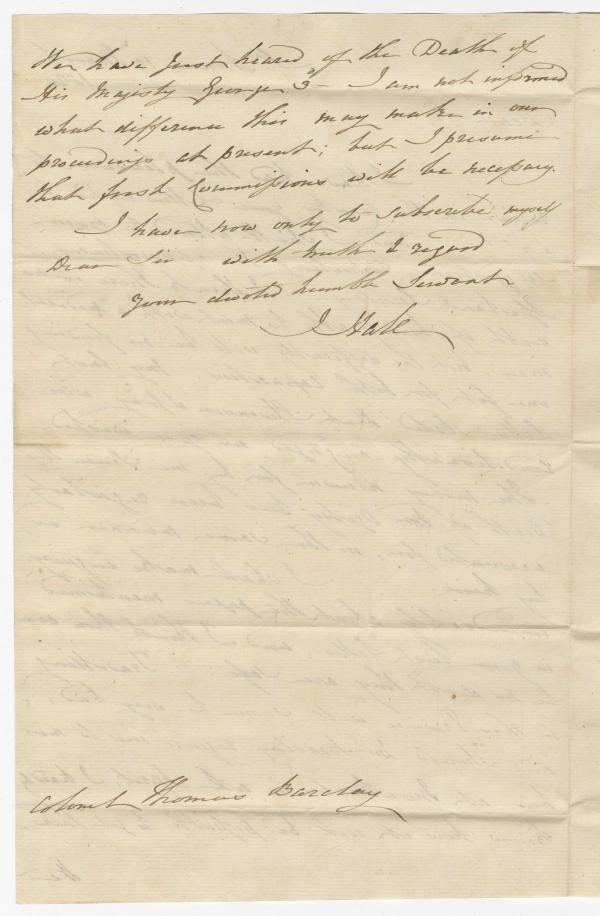 We have just heard of the Death of
His Majesty George 3d — I am not informed
what difference this may make in our
proceedings at present; but I presume
that fresh Commissions will be necessary.
I have now only to subscribe myself
Dear Sir with truth & regard
your devoted humble Servant
J Hale
Colonel Thomas Barclay